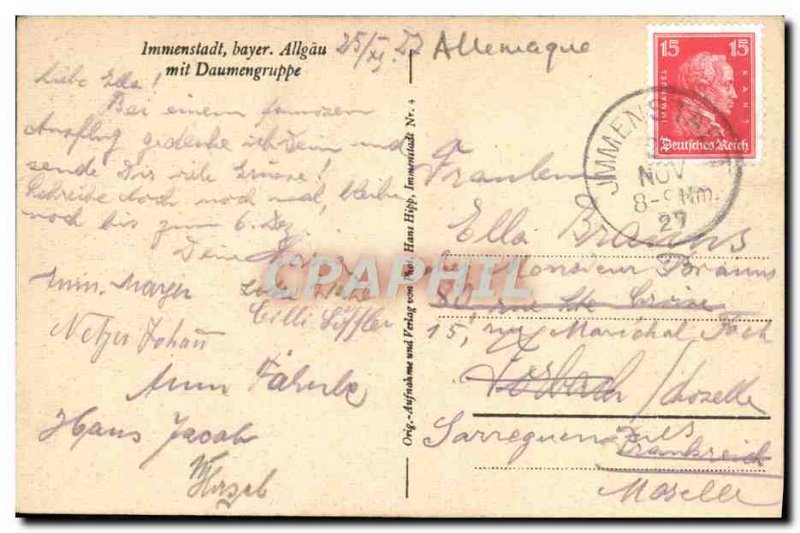 Immenstadt, bayer. Allgäu
mit Daumengruppe
25/XI. 27
Allemagne
Liebe Ella!
Bei einem famosen
Ausflug gedenke ich Dein und
sende Dir viele Grüsse!
Schreibe doch noch mal, bleibe
noch bis zum 6. Dez.
Deine
Cilli Löffler
Netzer Johann
Hans Jacob
Orig.-Aufnahme und Verlag von Phot. Hans Hipp, Immenstadt Nr. 4
15 15
IMMANUEL KANT
Deutsches Reich
IMMENSTADT
NOV
8-9 Nm.
27
Fräulein
Ella Brauns
Monsieur Brauns
80 rue Ste Croix
15, rue Maréchal Foch
Forbach / Moselle
Sarreguemines
Frankreich
Moselle
CPAPHIL